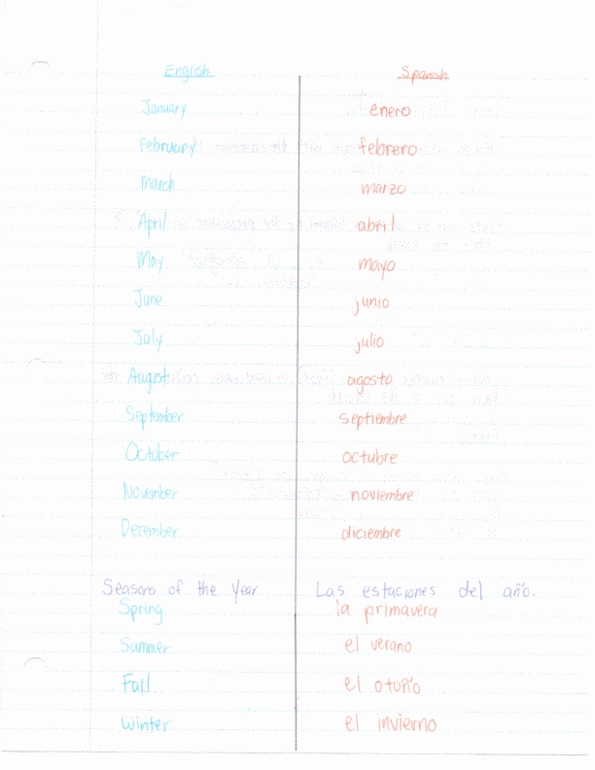 English Spanish
January enero
February febrero
March marzo
April abril
May mayo
June junio
July julio
August agosto
September septiembre
October octubre
November noviembre
December diciembre
Seasons of the Year Las estaciones del año.
Spring la primavera
Summer el verano
Fall el otoño
Winter el invierno